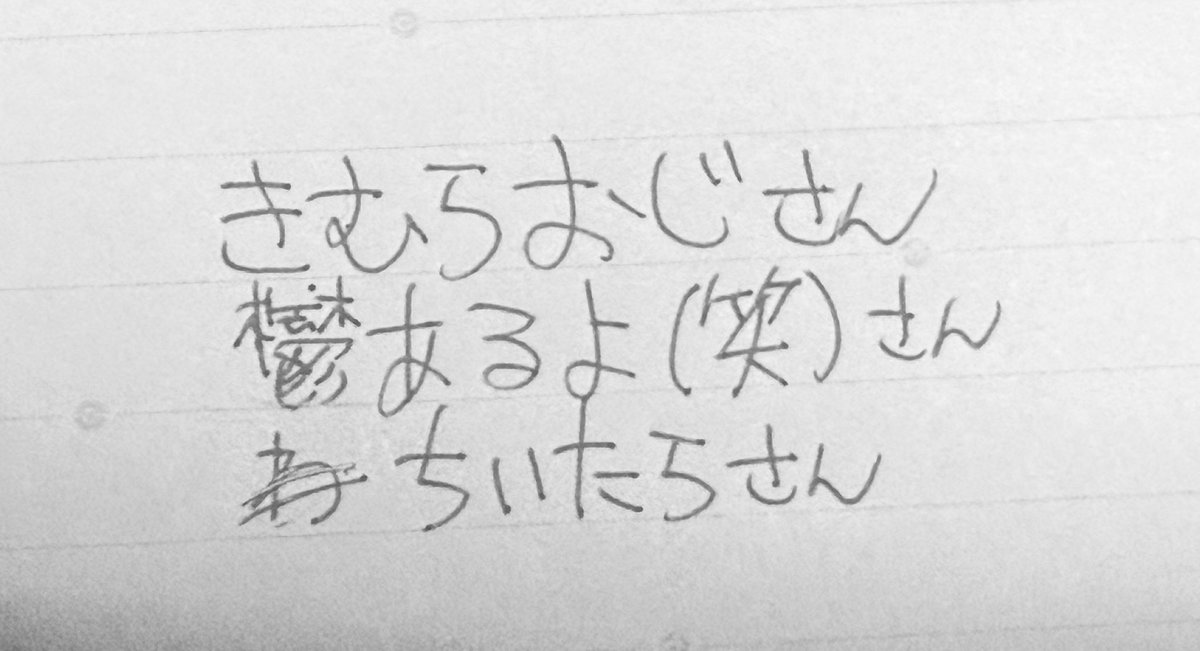 きむらおじさん
鬱あるよ(笑)さん
ちいたらさん